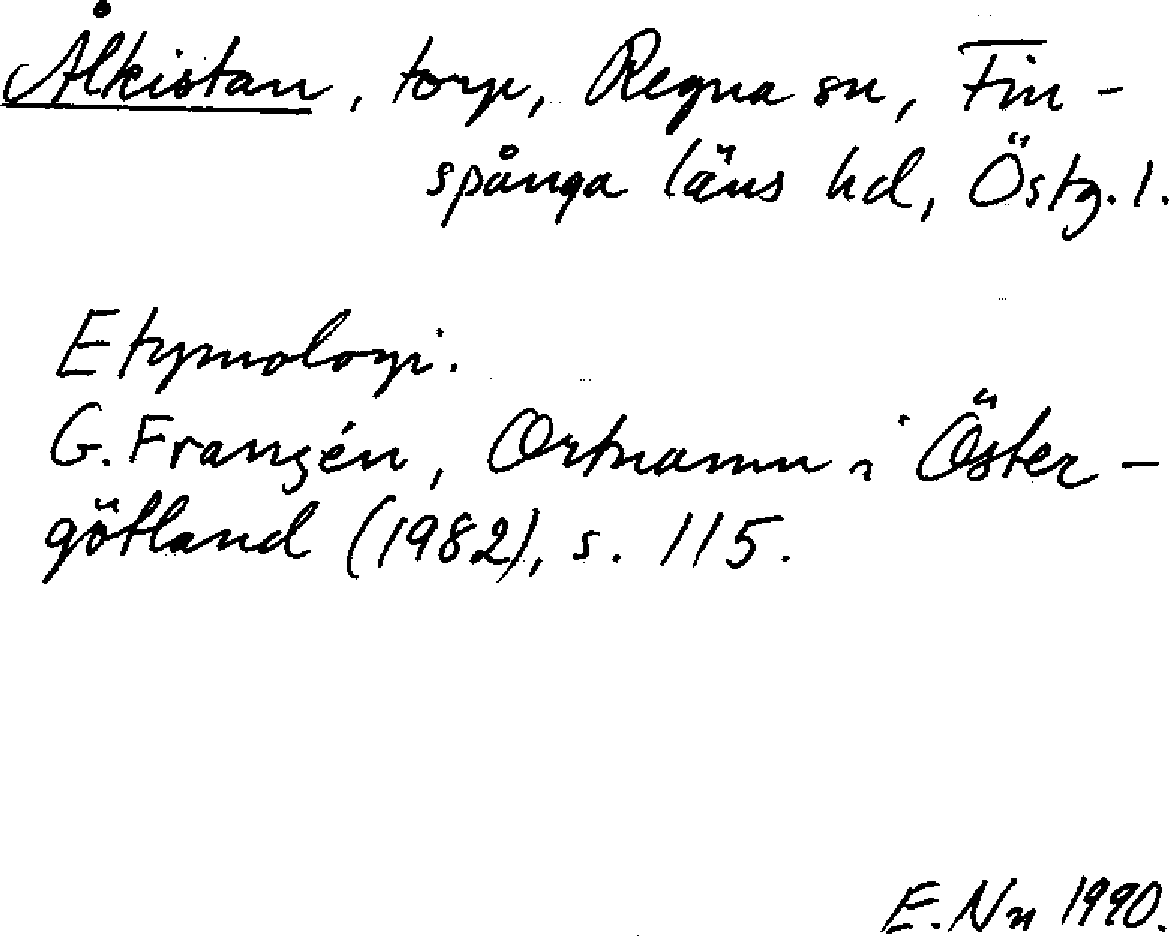 Ålkistan, torp, Regna sn, Fin-
spånga läns hd, Östg. l.
Etymologi.
G. Franzén, Ortnamn i Öster-
götland (1982), s. 115.
E. Nn 1990.